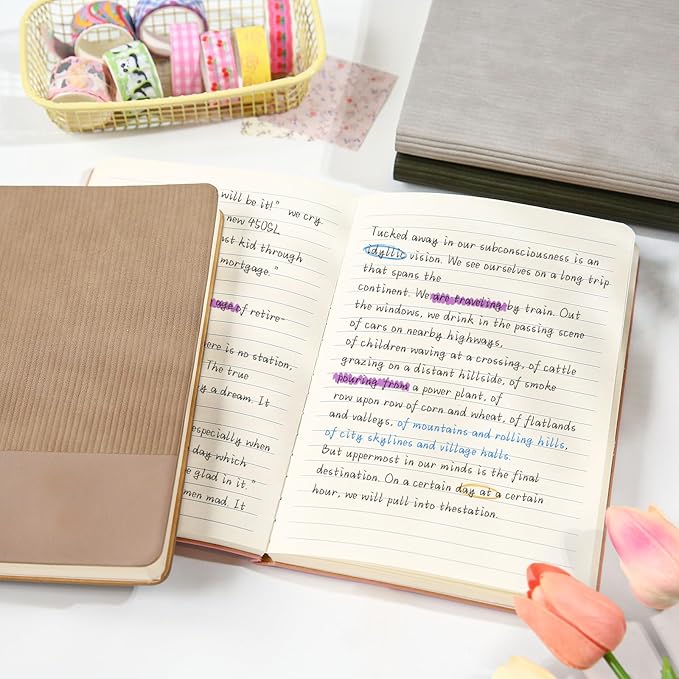 will be it!" we cry
new 450SL
st kid through
mortgage."
age of retire-
ere is no station,
The true
y a dream. It
especially when
day which
e glad in it."
men mad. It
Tucked away in our subconsciousness is an
idyllic vision. We see ourselves on a long trip
that spans the
continent. We are traveling by train. Out
the windows, we drink in the passing scene
of cars on nearby highways,
of children waving at a crossing, of cattle
grazing on a distant hillside, of smoke
pouring from a power plant, of
row upon row of corn and wheat, of flatlands
and valleys, of mountains and rolling hills,
of city skylines and village halls.
But uppermost in our minds is the final
destination. On a certain day at a certain
hour, we will pull into thestation.